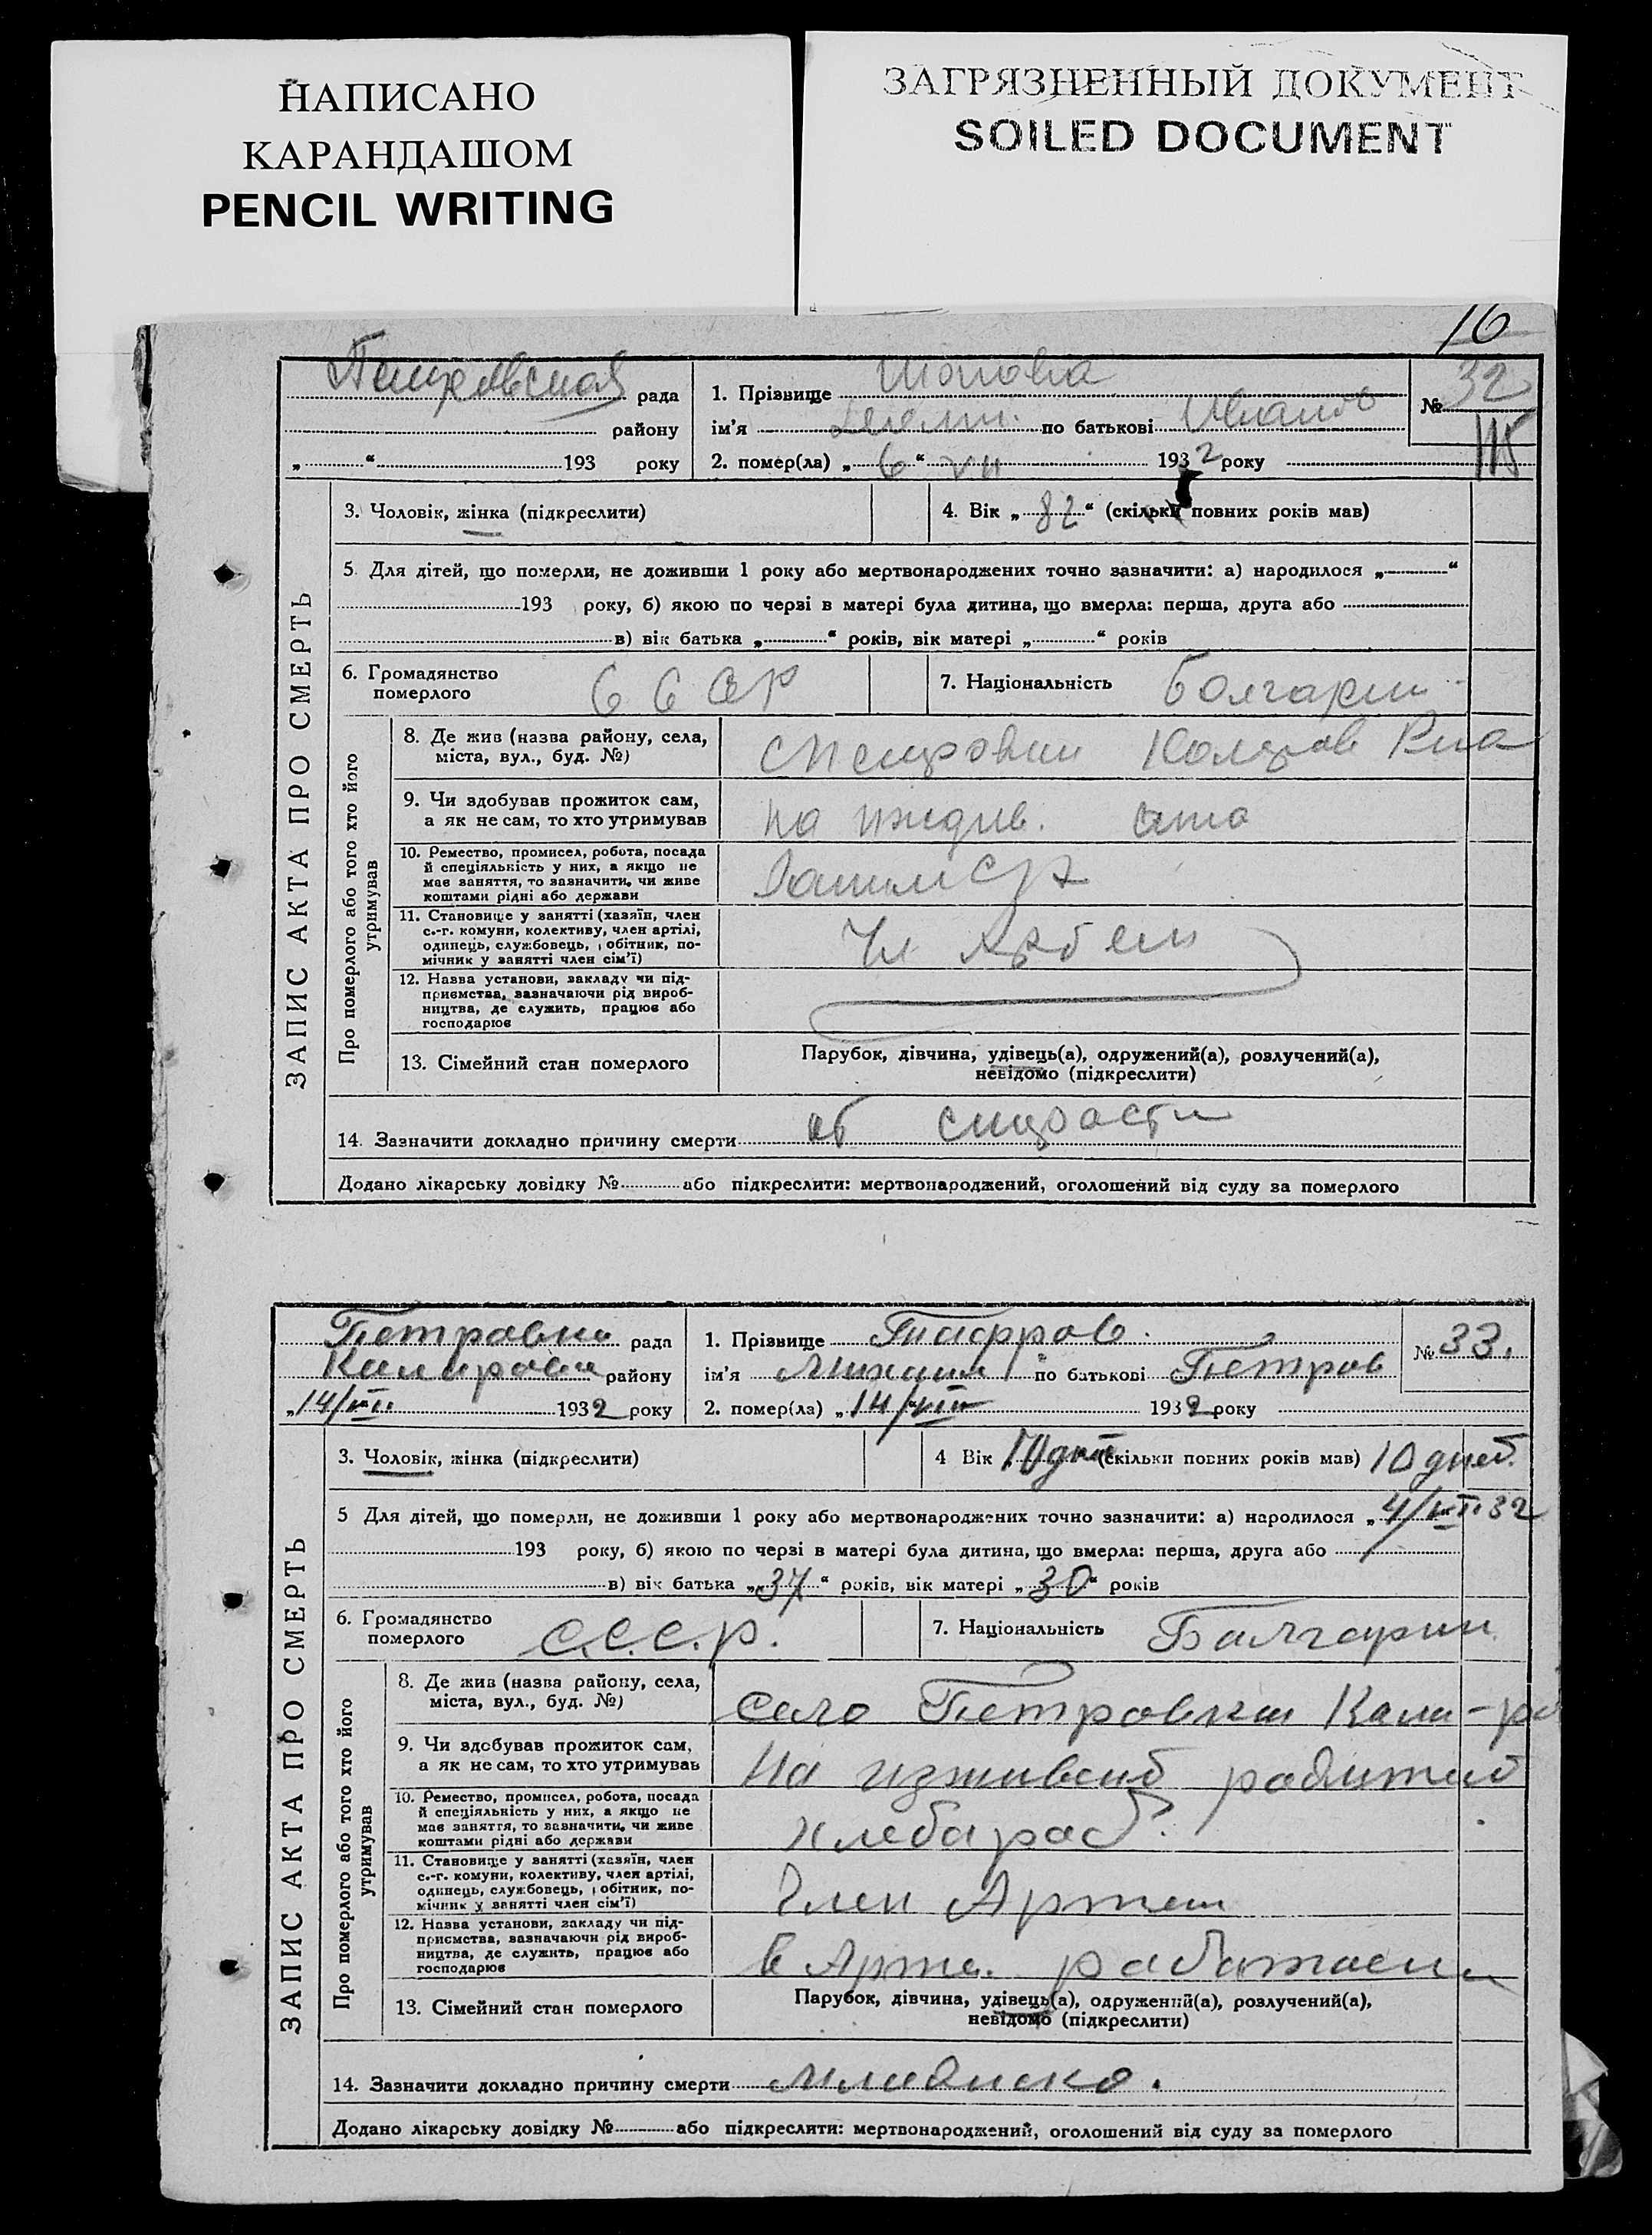 НАПИСАНО
КАРАНДАШОМ
PENCIL WRITING
ЗАГРЯЗНЕННЫЙ ДОКУМЕНТ
SOILED DOCUMENT
16
рада
району
„ “ 193 року
1. Прізвище
ім'я по батькові Иванов
2. помер(ла) „ 6 “ VII 1932 року
№ 32
115
3. Чоловік, жінка (підкреслити)
4. Вік „ 82 “ (скільки повних років мав)
5. Для дітей, що померли, не доживши 1 року або мертвонароджених точно зазначити: а) народилося „ “
193 року, б) якою по черзі в матері була дитина, що вмерла: перша, друга або
в) вік батька „ “ років, вік матері „ “ років
6. Громадянство
померлого
ССР
7. Національність Болгарин
8. Де жив (назва району, села,
міста, вул., буд. №)
9. Чи здобував прожиток сам,
а як не сам, то хто утримував
на иждив.
10. Ремество, промисел, робота, посада
й спеціяльність у них, а якщо не
має заняття, то зазначити, чи живе
коштами рідні або держави
11. Становище у занятті (хазяїн, член
с.-г. комуни, колективу, член артілі,
одинець, службовець, робітник, по-
мічник у занятті член сім'ї)
12. Назва установи, закладу чи під-
приємства, зазначаючи рід вироб-
ництва, де служить, працює або
господарює
13. Сімейний стан померлого
Парубок, дівчина, удівець(а), одружений(а), розлучений(а),
невідомо (підкреслити)
14. Зазначити докладно причину смерти от старости
Додано лікарську довідку № або підкреслити: мертвонароджений, оголошений від суду за померлого
ЗАПИС АКТА ПРО СМЕРТЬ
Про померлого або того хто його
утримував
Петровки рада
району
„14/VIII 1932 року
1. Прізвище
ім'я Михаил по батькові Пётров
2. помер(ла) „ 14/VIII 1932 року
№ 33.
3. Чоловік, жінка (підкреслити)
4 Вік 10 дней (скільки повних років мав) 10 дней.
5 Для дітей, що померли, не доживши 1 року або мертвонароджених точно зазначити: а) народилося „ 4/VIII 32
193 року, б) якою по черзі в матері була дитина, що вмерла: перша, друга або
в) вік батька „ 37 “ років, вік матері „ 30 “ років
6. Громадянство
померлого
С.С.С.р.
7. Національність Балгарин
8. Де жив (назва району, села,
міста, вул., буд. №)
село Петровки
9. Чи здобував прожиток сам,
а як не сам, то хто утримував
На
10. Ремество, промисел, робота, посада
й спеціяльність у них, а якщо не
має заняття, то зазначити, чи живе
коштами рідні або держави
хлебароб.
11. Становище у занятті (хазяїн, член
с.-г. комуни, колективу, член артілі,
одинець, службовець, робітник, по-
мічник у занятті член сім'ї)
Член Артели
12. Назва установи, закладу чи під-
приємства, зазначаючи рід вироб-
ництва, де служить, працює або
господарює
в Арте.
13. Сімейний стан померлого
Парубок, дівчина, удівець(а), одружений(а), розлучений(а),
невідомо (підкреслити)
14. Зазначити докладно причину смерти
Додано лікарську довідку № або підкреслити: мертвонароджений, оголошений від суду за померлого
ЗАПИС АКТА ПРО СМЕРТЬ
Про померлого або того хто його
утримував